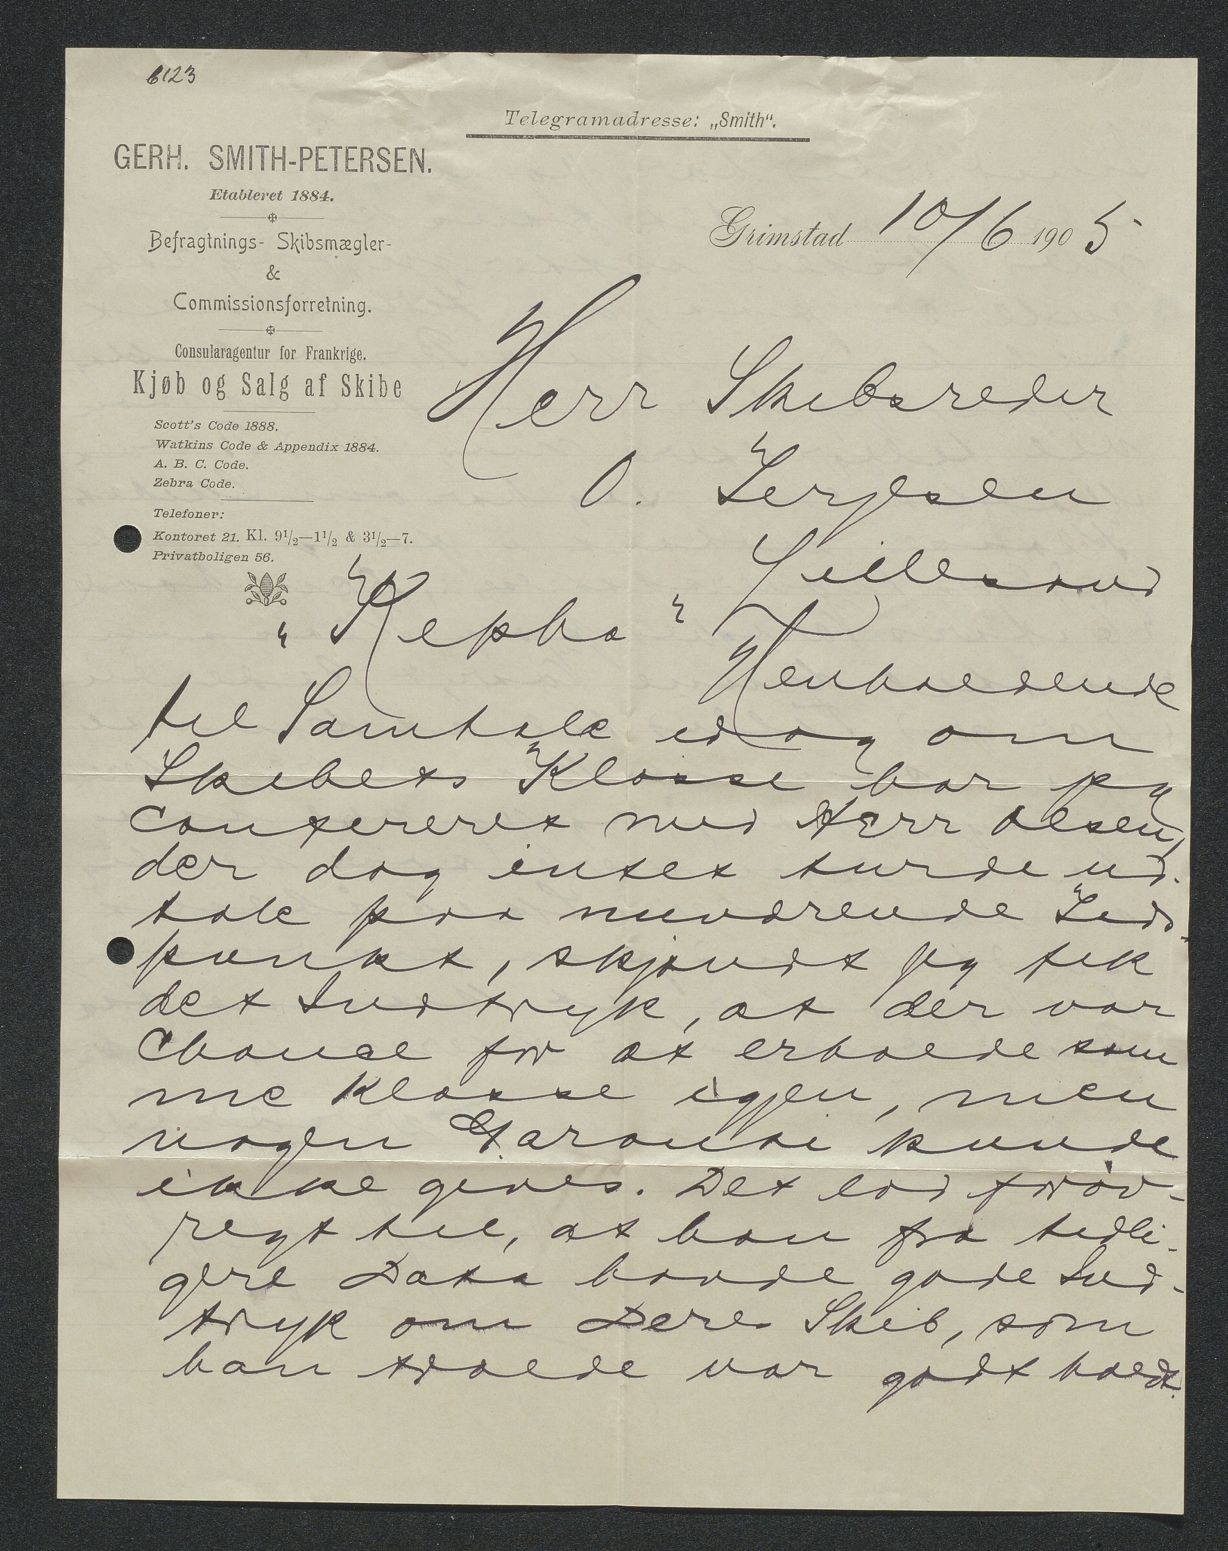 6123
Telegramadresse: „Smith“.
GERH. SMITH-PETERSEN.
Etableret 1884.
Befragtnings- Skibsmægler-
&
Commissionsforretning.
Consularagentur for Frankrige.
Kjøb og Salg af Skibe
Scott's Code 1888.
Watkins Code & Appendix 1884.
A. B. C. Code.
Zebra Code.
Telefoner:
Kontoret 21. Kl. 9½—1½ & 3½—7.
Privatboligen 56.
Grimstad 10/6 1905
Herr Skibsreder
O. Terjesen
Lillesand
"Kepha"
Henholdende
til Samtale idag om
Skibets Klasse har jeg
confereret med Herr Olsen,
der dog intet turde ud-
tale paa nuværende Tids-
punkt, skjøndt jeg fik
det Indtryk, at der var
Chance for at erholde sam
me Klasse igjen, men
nogen Garanti kunde
ikke gives. Det lod forøv-
rigt til, at han fra tidli-
gere Data havde gode Ind-
tryk om Deres Skib, som
han troede var godt holdt.